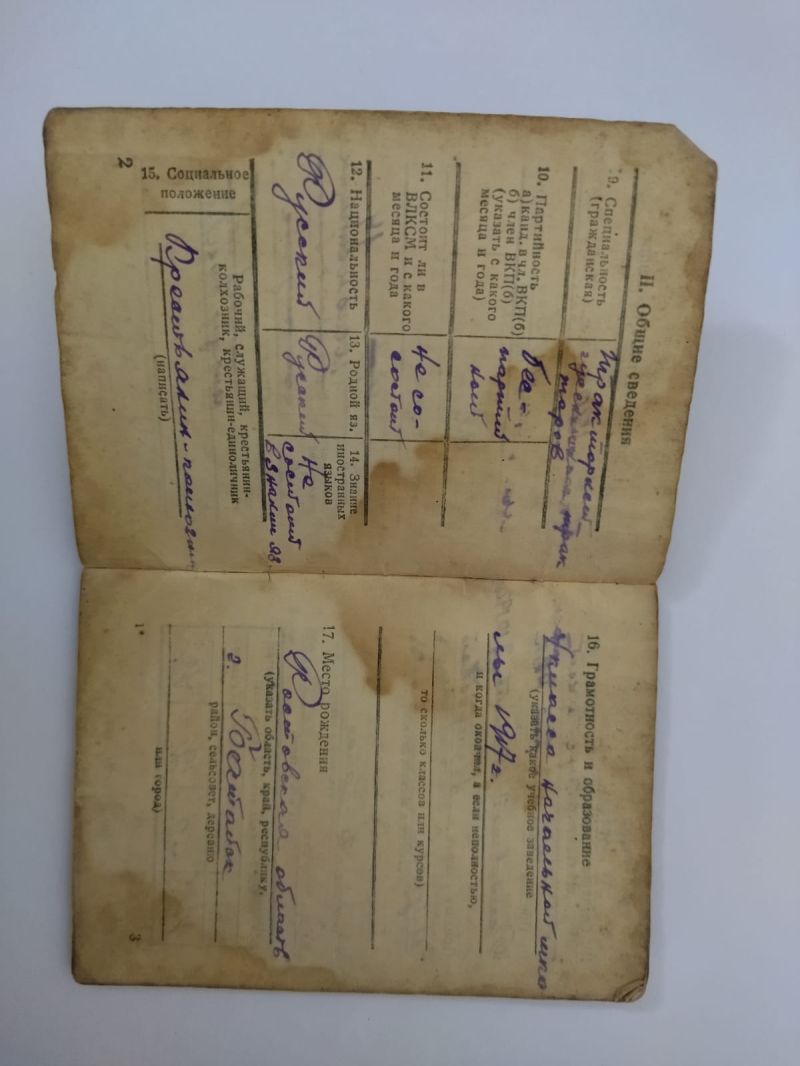 II. Общие сведения
9. Специальность
(гражданская)
10. Партийность
а) канд. в чл. ВКП(б)
б) член ВКП(б)
(указать с какого
месяца и года)
Бес
партий
ный
11. Состоит ли в
ВЛКСМ и с какого
месяца и года
Не со-
стоит
12. Национальность
Русский
13. Родной яз.
Русский
14. Знание
иностранных
языков
Не
состоит
15. Социальное
положение
Рабочий, служащий, крестьянин-
колхозник, крестьянин-единоличник
Крестьянин-
(написать)
2
16. Грамотность и образование
4 класса начальной шко
(указать какое учебное заведение
лы
и когда окончил, а если неполностью,
то сколько классов или курсов)
17. Место рождения
Ростовская область
(указать область, край, республику,
г. Батайск
район, сельсовет, деревню
или город)
1*
3